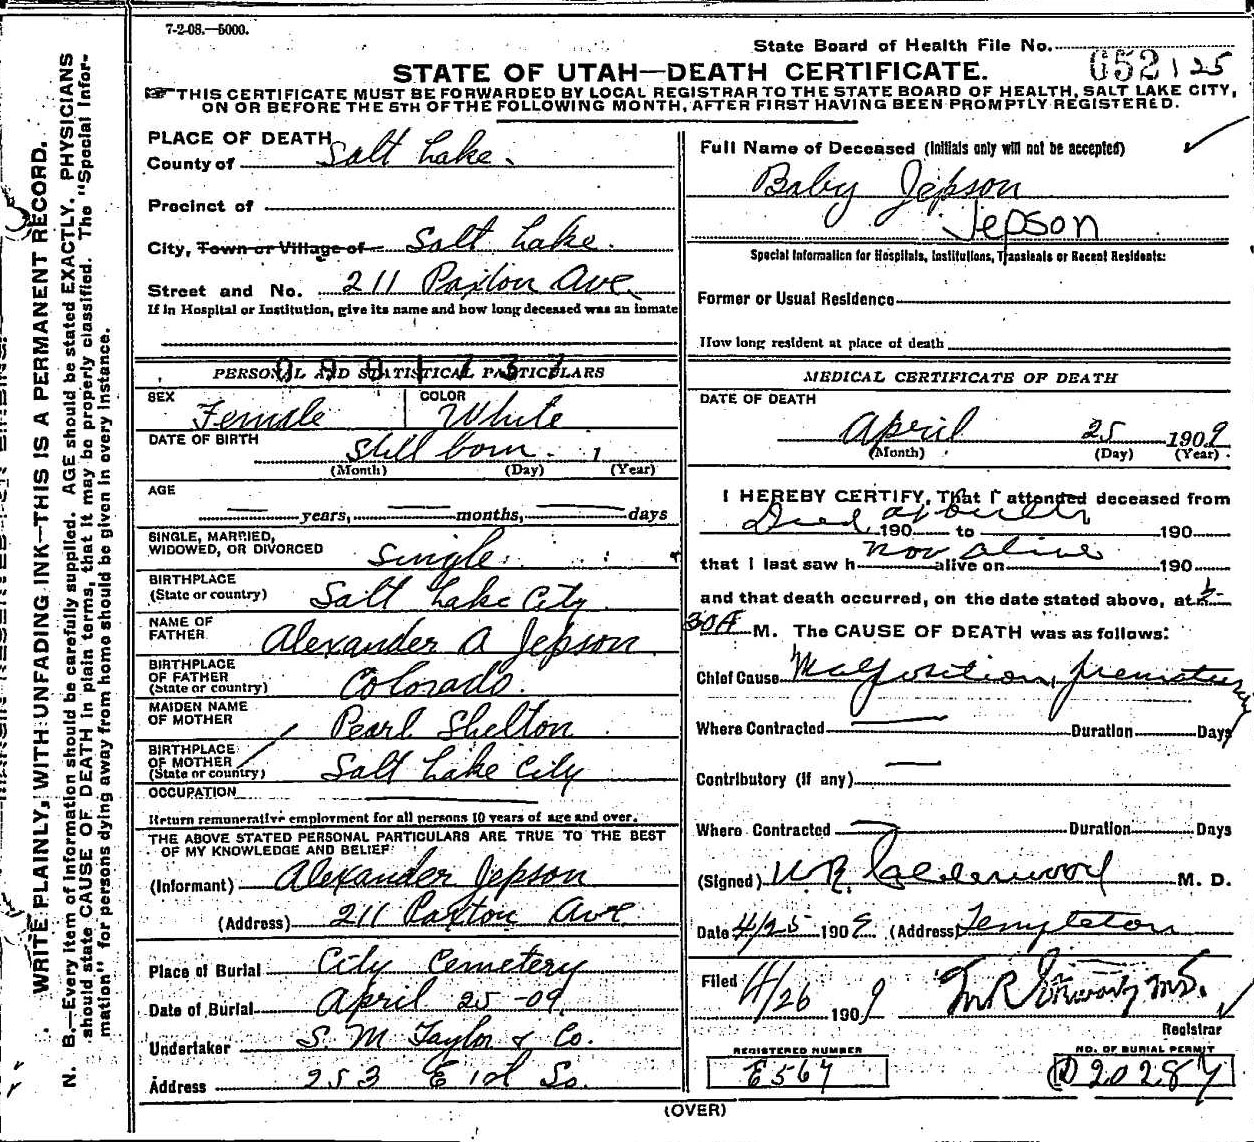 7-2-08.—5000.
State Board of Health File No. 652 125
STATE OF UTAH—DEATH CERTIFICATE.
THIS CERTIFICATE MUST BE FORWARDED BY LOCAL REGISTRAR TO THE STATE BOARD OF HEALTH, SALT LAKE CITY,
ON OR BEFORE THE 5TH OF THE FOLLOWING MONTH, AFTER FIRST HAVING BEEN PROMPTLY REGISTERED.
WRITE PLAINLY, WITH UNFADING INK—THIS IS A PERMANENT RECORD.
N. B.—Every item of information should be carefully supplied. AGE should be stated EXACTLY. PHYSICIANS
should state CAUSE OF DEATH in plain terms, that it may be properly classified. The "Special Infor-
mation" for persons dying away from home should be given in every instance.
PLACE OF DEATH
County of Salt Lake.
Precinct of
City, Town or Village of Salt Lake.
Street and No. 211 Paxton Ave
If in Hospital or Institution, give its name and how long deceased was an inmate
PERSONAL AND STATISTICAL PARTICULARS
SEX Female COLOR White
DATE OF BIRTH Still born.
(Month) (Day) (Year)
AGE
years, months, days
SINGLE, MARRIED,
WIDOWED, OR DIVORCED Single
BIRTHPLACE
(State or country) Salt Lake City
NAME OF
FATHER Alexander A Jepson
BIRTHPLACE
OF FATHER
(State or country) Colorado.
MAIDEN NAME
OF MOTHER Pearl Shelton
BIRTHPLACE
OF MOTHER
(State or country) Salt Lake City
OCCUPATION
Return remunerative employment for all persons 10 years of age and over.
THE ABOVE STATED PERSONAL PARTICULARS ARE TRUE TO THE BEST
OF MY KNOWLEDGE AND BELIEF
(Informant) Alexander Jepson
(Address) 211 Paxton Ave
Place of Burial City Cemetery
Date of Burial April 25-09
Undertaker S. M Taylor & Co.
Address 253 E 1st So.
Full Name of Deceased (Initials only will not be accepted)
Baby Jepson
Jepson
Special Information for Hospitals, Institutions, Transients or Recent Residents:
Former or Usual Residence
How long resident at place of death
MEDICAL CERTIFICATE OF DEATH
DATE OF DEATH
April 25 1909
(Month) (Day) (Year)
I HEREBY CERTIFY, That I attended deceased from
Died at birth 190 to 190
that I last saw h nov alive alive on 190
and that death occurred, on the date stated above, at
30A M. The CAUSE OF DEATH was as follows:
Chief Cause Malposition, premature
Where Contracted Duration Days
Contributory (if any)
Where Contracted Duration Days
(Signed) W.R. Calderwood M. D.
Date 4/25 1909. (Address) Templeton
Filed 4/26 1909
Registrar
REGISTERED NUMBER
E567
NO. OF BURIAL PERMIT
D20287
(OVER)